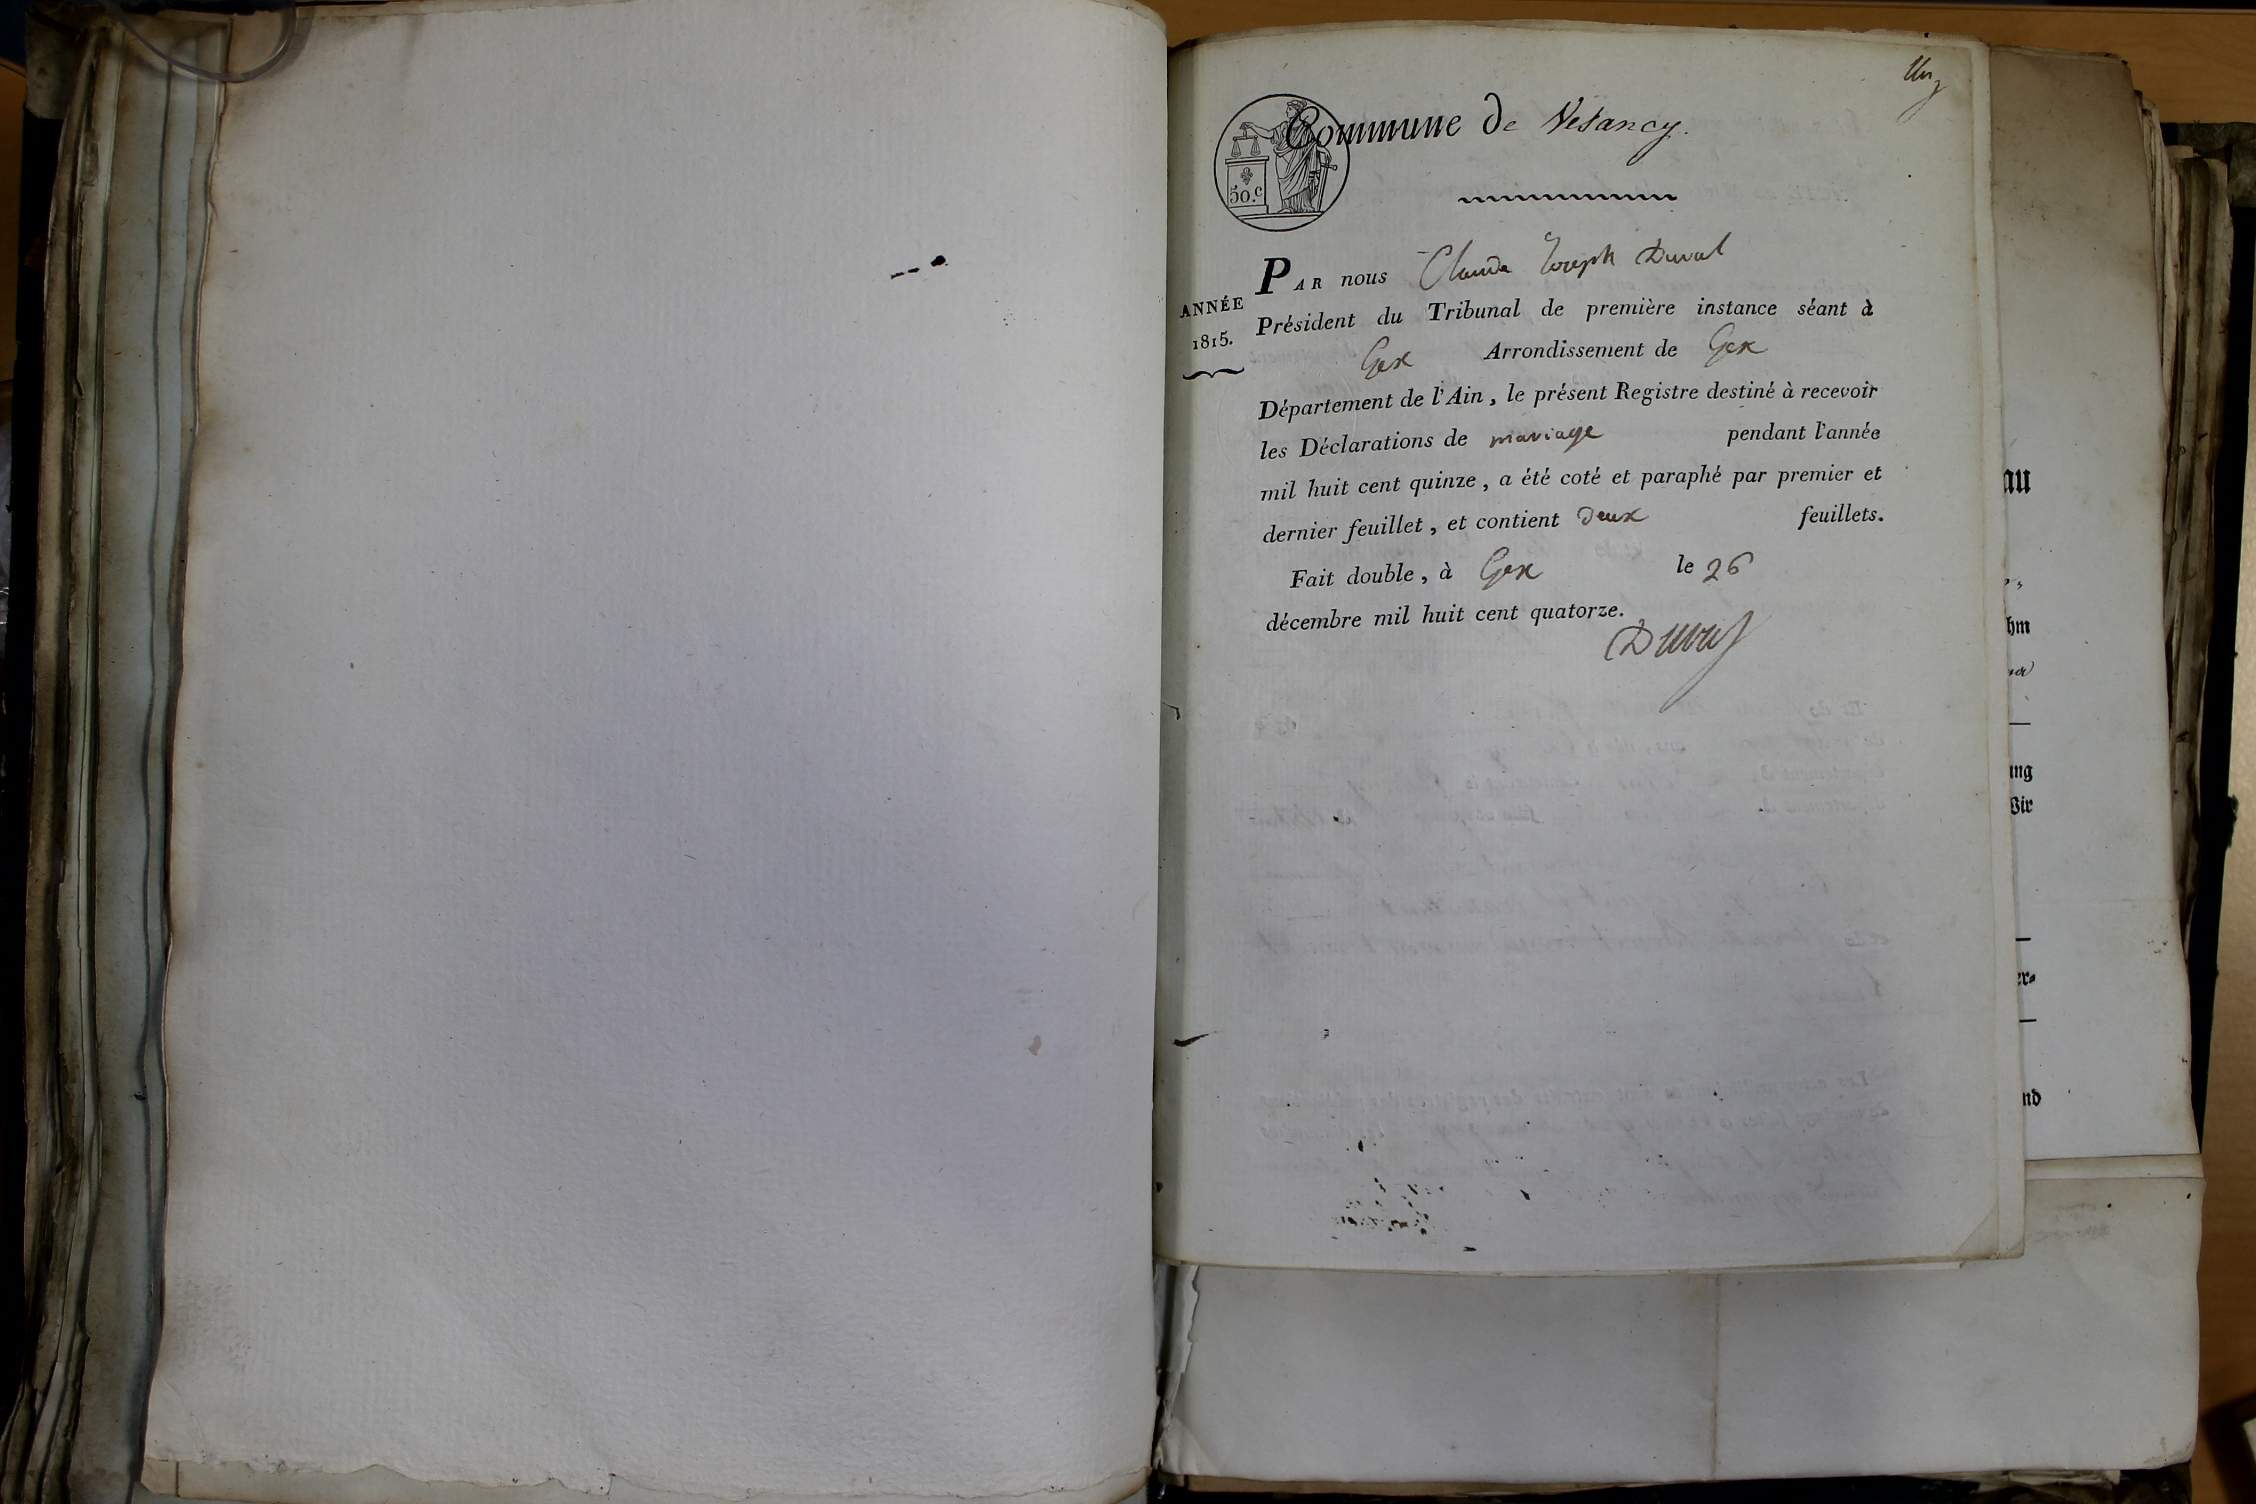 Un
Commune de Vesancy.
50.c
PAR nous Claude Joseph Duval
ANNÉE
1815.
Président du Tribunal de première instance séant à
Gex Arrondissement de Gex
Département de l'Ain, le présent Registre destiné à recevoir
les Déclarations de mariage pendant l'année
mil huit cent quinze, a été coté et paraphé par premier et
dernier feuillet, et contient deux feuillets.
Fait double, à Gex le 26
décembre mil huit cent quatorze.
Duval
au
hm
ung
Wir
er-
nd